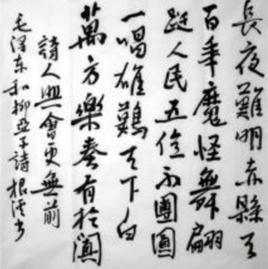 長夜難明赤縣天
百年魔怪舞翩
跹人民五億不團圓
一唱雄鷄天下白
萬方樂奏有於闐
詩人興會更無前
毛澤东和柳亞子詩 根书